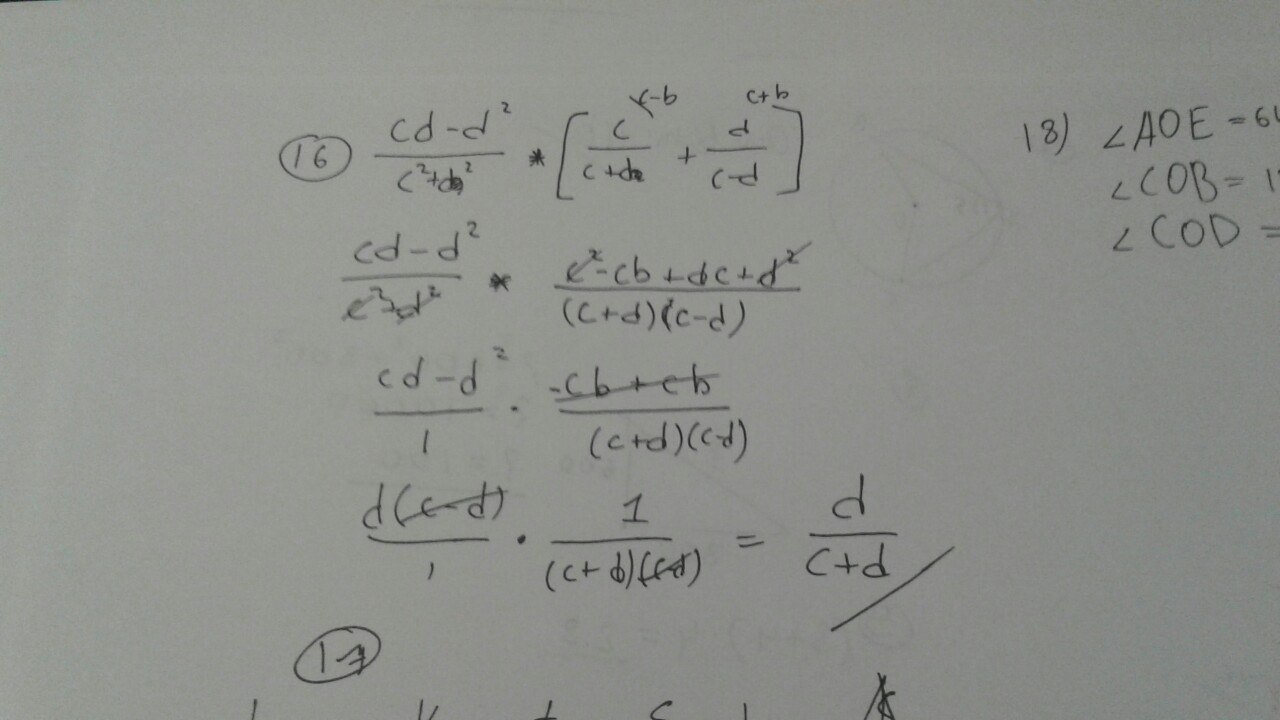 16 (cd-d²)/(c²+d²) * [c/(c+d) + d/(c-d)] c-b c+b
(cd-d²)/(c²+d²) * (c²-cb+dc+d²)/((c+d)(c-d))
(cd-d²)/1 . (-cb+cb)/((c+d)(c-d))
d(c-d)/1 . 1/((c+b)(c-d)) = d/(c+d)
1-7
18) ∠AOE = 64
∠COB = 1
∠COD =